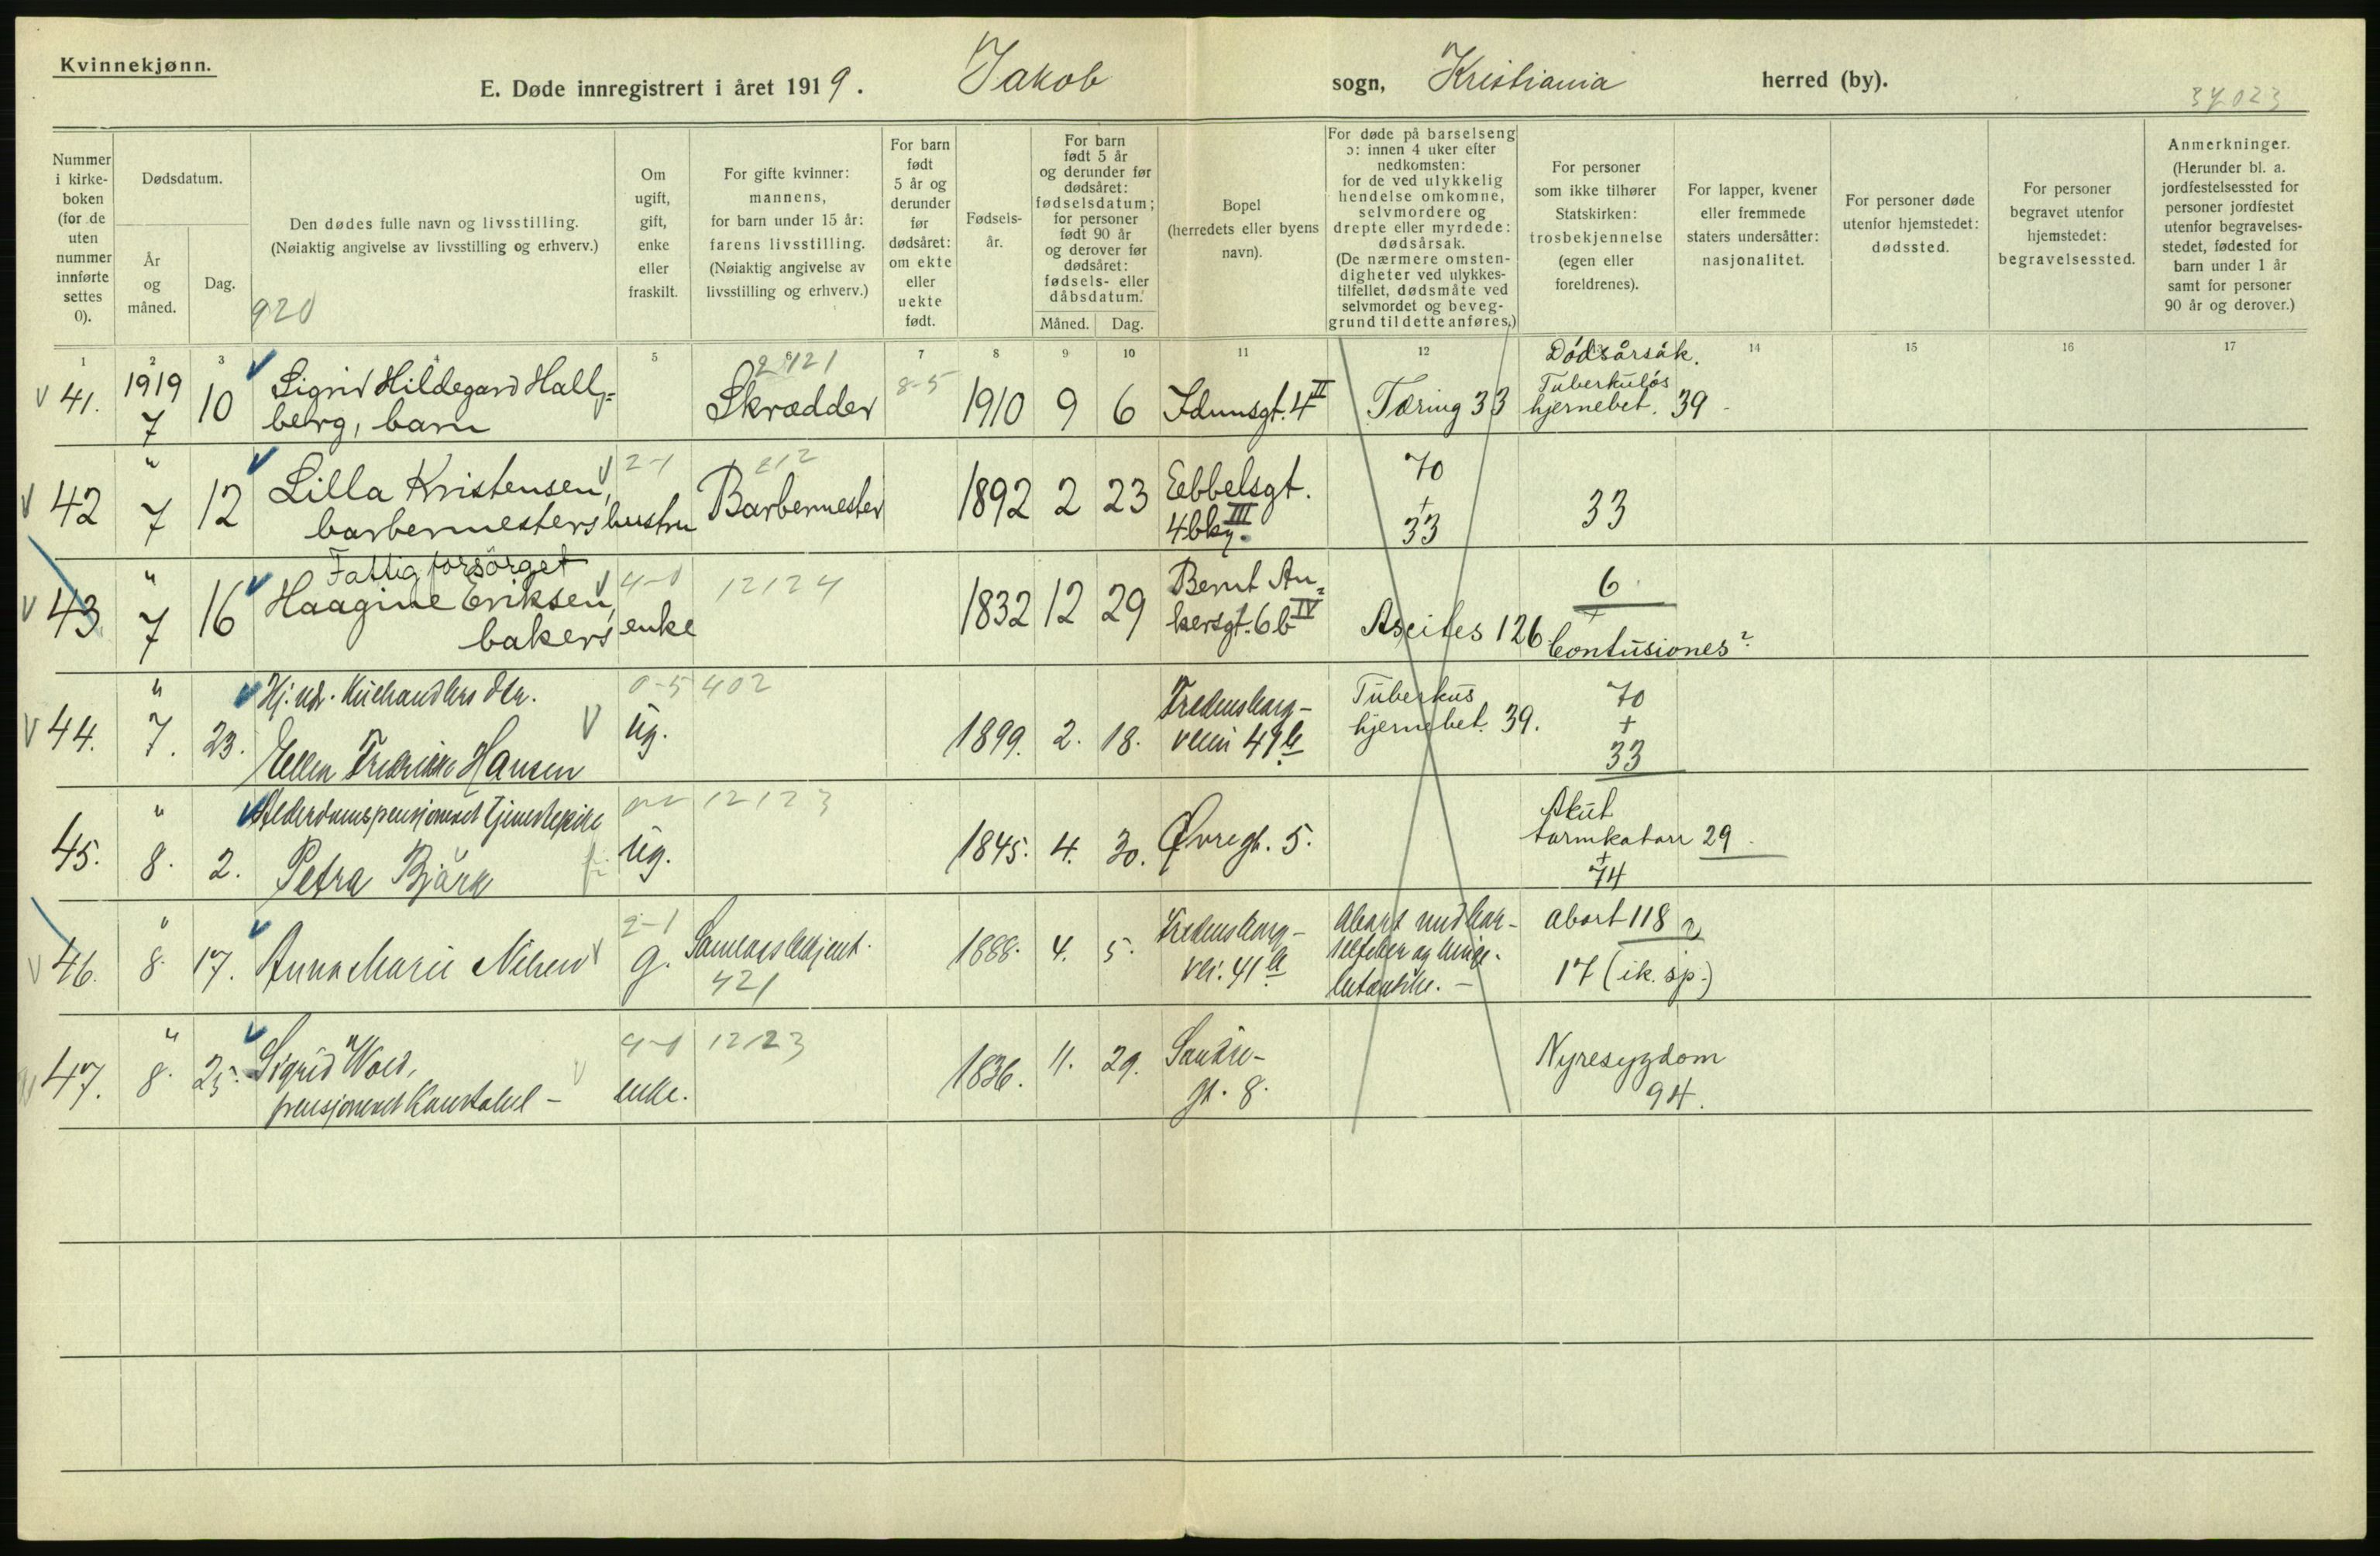 Kvinnekjønn.
E. Døde innregistrert i året 1919. Jakob sogn, Kristiania herred (by).
37023
Nummer i kirke-boken (for de uten nummer innførte settes 0).
Dødsdatum.
År og måned.
Dag.
Den dødes fulle navn og livsstilling.
(Nøiaktig angivelse av livsstilling og erhverv.)
920
Om ugift, gift, enke eller fraskilt.
For gifte kvinner: mannens, for barn under 15 år: farens livsstilling. (Nøiaktig angivelse av livsstilling og erhverv.)
For barn født 5 år og derunder før dødsåret: om ekte eller uekte født.
Fødsels-år.
For barn født 5 år og derunder før dødsåret: fødselsdatum; for personer født 90 år og derover før dødsåret: fødsels- eller dåbsdatum.
Måned. Dag.
Bopel (herredets eller byens navn).
For døde på barselseng ɔ: innen 4 uker efter nedkomsten: for de ved ulykkelig hendelse omkomne, selvmordere og drepte eller myrdede: dødsårsak. (De nærmere omsten-digheter ved ulykkes-tilfellet, dødsmåte ved selvmordet og beveg-grund til dette anføres.)
For personer som ikke tilhører Statskirken: trosbekjennelse (egen eller foreldrenes).
For lapper, kvener eller fremmede staters undersåtter: nasjonalitet.
For personer døde utenfor hjemstedet: dødssted.
For personer begravet utenfor hjemstedet: begravelsessted.
Anmerkninger. (Herunder bl. a. jordfestelsessted for personer jordfestet utenfor begravelses-stedet, fødested for barn under 1 år samt for personer 90 år og derover.)
1 2 3 5 6 7 8 9 10 11 12 14 15 16 17
Dødsårsak.
V 41. 1919 7 10 Sigrid Hildegard Hallg= 2421 Skrædder 8-5 1910 9 6 Idunsgt. 4 II Tæring 33 Tuberkuløs
berg, barn hjernebet. 39
V 42 " 7 12 Lilla Kristensen, V 2-1 212 Barbermester 1892 2 23 Ebbelsgt. 70 + 33 33
barbermesters hustru 4b kj. III
Fattig forsørget
V 43 " 7 16 Haagine Eriksen, V 4-0 12124 1832 12 29 Bernt An= Ascites 126 6 +
bakers enke kersgt. 6b IV Contusiones?
V 44. " 7. 23. Hj. v. datter. V 0-5 402 ug. 1899. 2. 18. Fredensborg- Tuberkuløs 70 +
Ellen Fredrikke Hansen veien 49b hjernebet. 39. 33
45. " 8. 2. Alderdomspensjonert tjenestepike 12123 ug. 1845. 4. 30. Øvregt. 5. Akut
Petra Bjørk tarmkatarr 29 + 74
V 46. " 8. 17. Anna Marie Nilsen V 2-1 g. 421 1888. 4. 5. Fredensborg- Abort med bar- abort 118
vei. 41b 17 (ik. sp.)
47. " 8. 25. Sigrid Wold, V 4-0 12123 enke. 1836. 11. 29. Søndre- Nyresygdom
pensjonert gt. 8. 94.